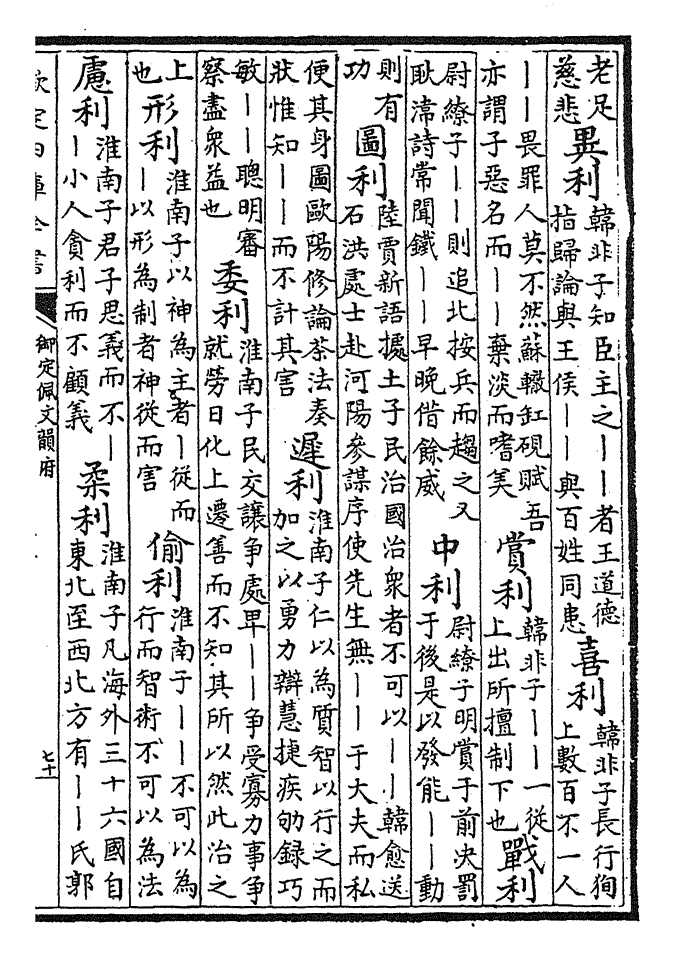 老足慈悲 異利 韓非子知臣主之｜｜者王道德指歸論與王侯｜｜與百姓同患 喜利 韓非子長行徇上數百不一人
｜｜畏罪人莫不然蘇轍缸硯賦吾亦謂子惡名而｜｜棄淡而嗜美 賞利 韓非子｜｜一從上出所擅制下也 戰利
尉繚子｜｜則追北按兵而趨之又耿湋詩常聞鐵｜｜早晚借餘威 中利 尉繚子明賞于前決罰于後是以發能｜｜動
則有功 圖利 陸賈新語據土子民治國治衆者不可以｜｜韓愈送石洪處士赴河陽參謀序使先生無｜｜于大夫而私
便其身圖歐陽修論茶法奏狀惟知｜｜而不計其害 遲利 淮南子仁以為質智以行之而加之以勇力辯慧捷疾劬録巧
敏｜｜聰明審察盡衆益也 委利 淮南子民交讓爭處卑｜｜爭受寡力事爭就勞日化上遷善而不知其所以然此治之
上也 形利 淮南子以神為主者｜從而｜以形為制者神從而害 偷利 淮南子｜｜不可以為行而智術不可以為法
慮利 淮南子君子思義而不｜｜小人貪利而不顧義 柔利 淮南子凡海外三十六國自東北至西北方有｜｜氏郭
欽定四庫全書
御定佩文韻府
七十